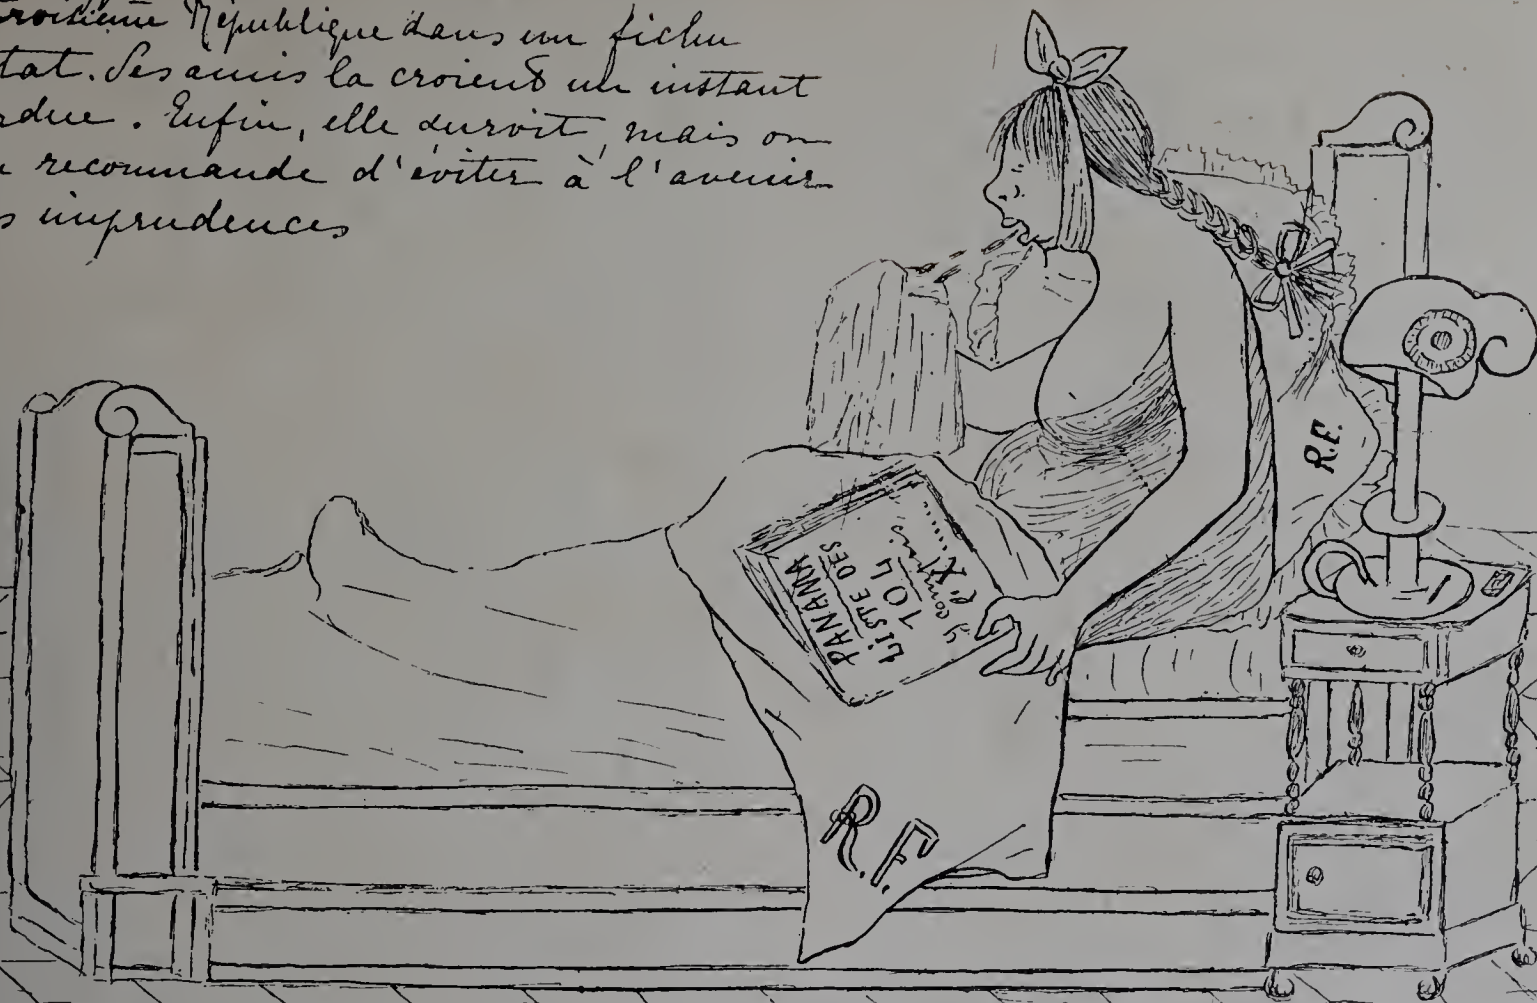 roisième République dans un fichu
tat. Ses amis la croient un instant
rdue. Enfin, elle survit, mais on
recommande d'éviter à l'avenir
s imprudences
PANAMA
LiSTE DES
104
y compris
l'X.....
R.F.
R.F.